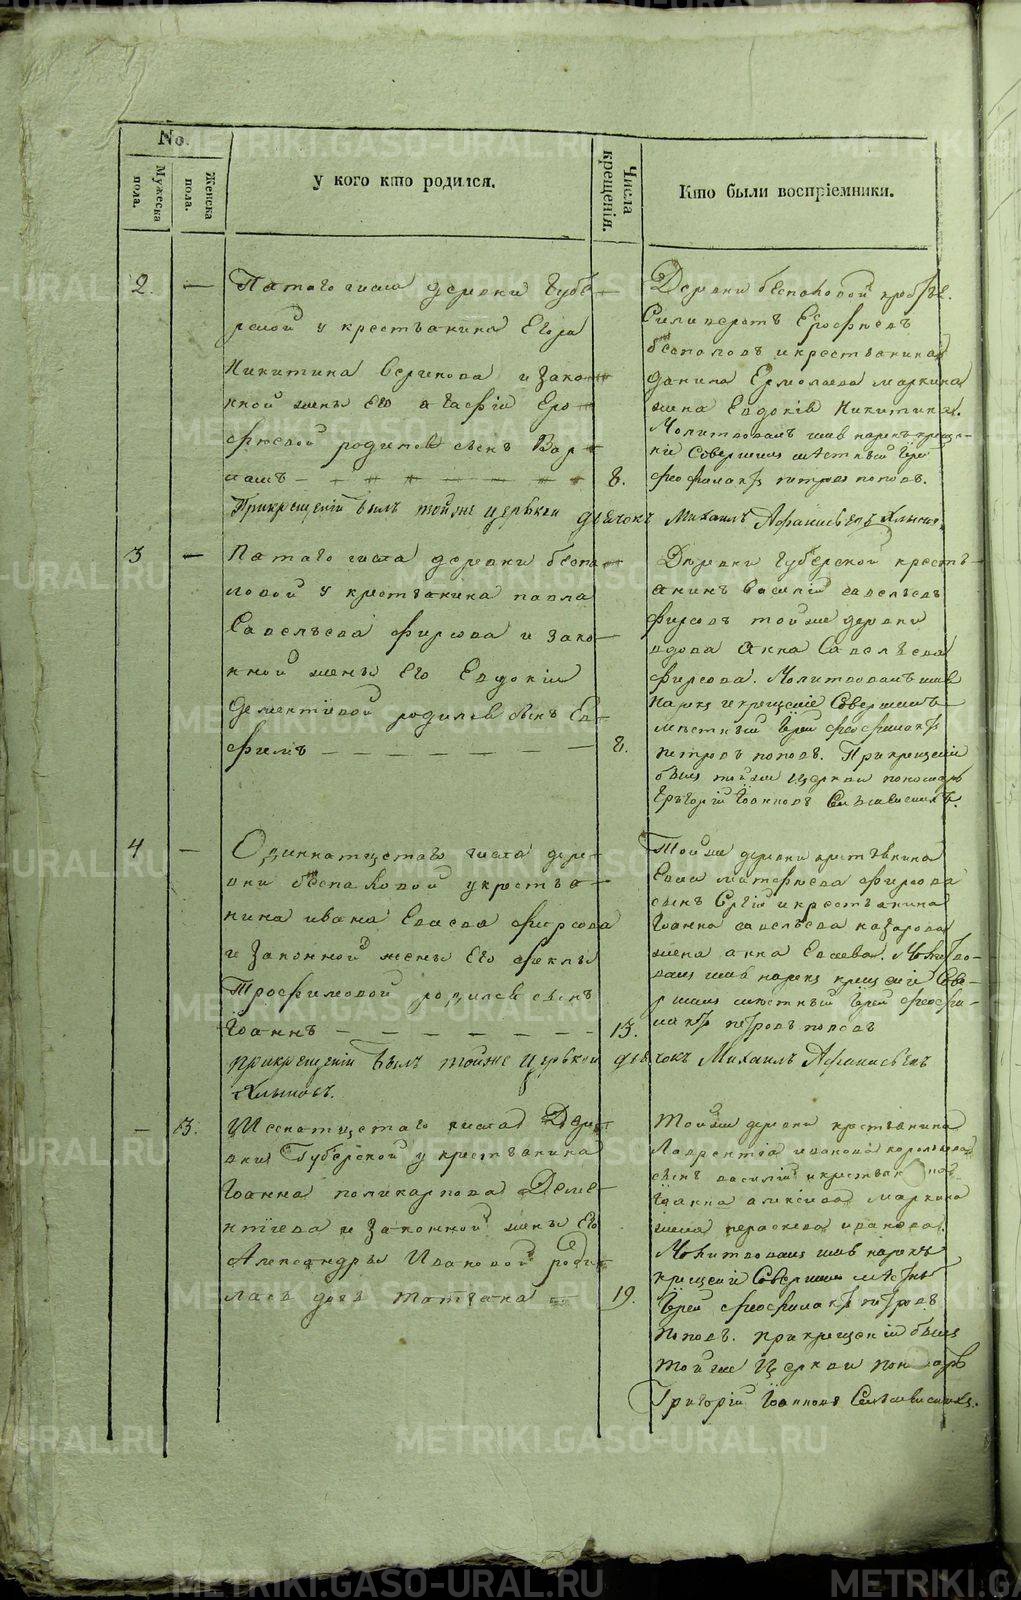 No.
Мужеска пола.
Женска пола.
у кого кто родился.
Числа крещенія.
Кто были воспріемники.
2. — Пятаго числа деревни Губе-
рской у крестьянина Егора
Никитина и зако-
нной жены Его Агафіи Еро
фѣевой родился сынъ Вар
ламъ 8.
Деревни безпаловой
Ерофѣевъ
безпаловъ и крестьянина
данила Ермолаева маркина
жена Евдокія Никитина.
Молитвовалъ имя нарекъ креще-
ніе Совершилъ мѣстный Іерей
феофилактъ петровъ поповъ.
При крещеніи былъ тойже церькви дьячокъ Михаилъ Афанасьевъ
3 — Пятаго числа деревни безпа
ловой у крестьянина павла
Савельева фирсова и зако-
нной жены Его Евдокіи
Дементіевой родился сынъ Ев-
фимъ 8.
Деревни Губерской кресть-
янинъ Василій савельевъ
фирсовъ тойже деревни
вдова Анна Савельева
фирсова. Молитвовалъ имя
нарекъ и крещеніе Совершилъ
мѣстный Іерей феофилактъ
петровъ поповъ. При крещеніи
былъ тойже церкви пономарь
Григорій Іоанновъ
4 — Одиннатцетаго числа дере-
вни безпаловой у крестья-
нина ивана Евсева фирсова
и Законной жены Его феклы
Трофимовой родился сынъ
Іоаннъ 13.
Тойже деревни крестьянина
Евсея матфеева фирсова
сынъ Сергій и крестьянина
Іоанна савельева назарова
жена анна Евсева. Молитво-
валъ имя нарекъ крещеніе Сове-
ршилъ мѣстный Іерей феофи-
лактъ петровъ поповъ
при крещеніи былъ тойже церькви дьячокъ Михаилъ Афанасьевъ
— 3. Шеснатцетаго числа Дере-
вни Губерской у крестьянина
Іоанна поликарпова Деме-
нтіева и Законной жены Его
Александры Ивановой роди-
лась дочь татіана 19.
Тойже деревни крестьянина
Лаврентія иванова
сынъ василій и крестьянина
Іоанна алексіева маркина
жена параскева иванова.
Молитвовалъ имя нарекъ
крещеніе Совершилъ мѣстный
Іерей феофилактъ петровъ
поповъ. при крещеніи былъ
тойже Церкви пономарь
Григорій Іоанновъ
METRIKI.GASO-URAL.RU